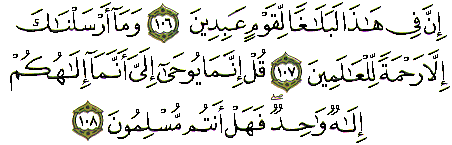 إِنَّ فِى هَٰذَا لَبَلَٰغًا لِّقَوْمٍ عَٰبِدِينَ ١٠٦ وَمَآ أَرْسَلْنَٰكَ
إِلَّا رَحْمَةً لِّلْعَٰلَمِينَ ١٠٧ قُلْ إِنَّمَا يُوحَىٰٓ إِلَىَّ أَنَّمَآ إِلَٰهُكُمْ
إِلَٰهٌ وَٰحِدٌ ۖ فَهَلْ أَنتُم مُّسْلِمُونَ ١٠٨